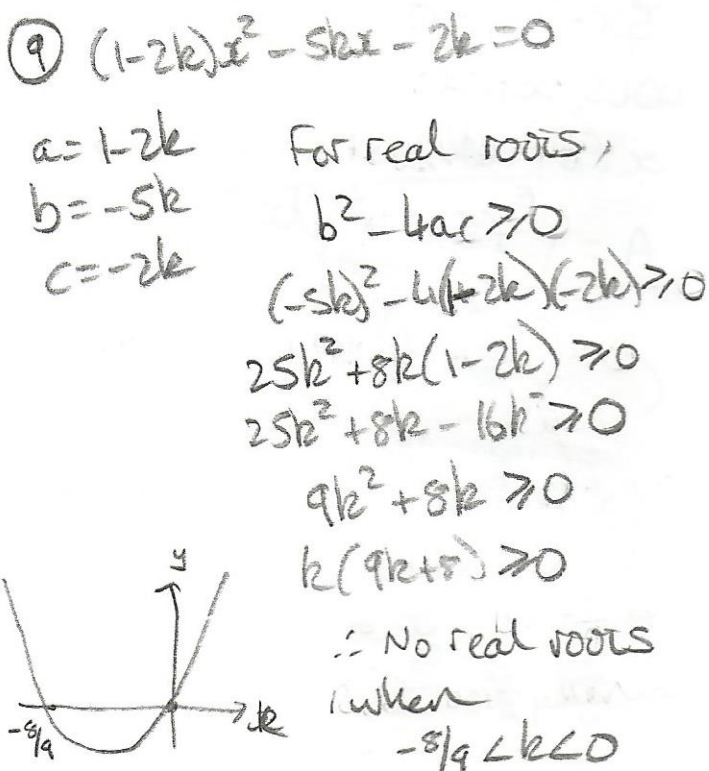 9 (1-2k)x² - 5kx - 2k = 0
a = 1-2k
b = -5k
c = -2k
For real roots,
b² - 4ac ⩾ 0
(-5k)² - 4(1-2k)(-2k) ⩾ 0
25k² + 8k(1-2k) ⩾ 0
25k² + 8k - 16k² ⩾ 0
9k² + 8k ⩾ 0
k(9k+8) ⩾ 0
∴ No real roots
when
-8/9 < k < 0
y
k
-8/9